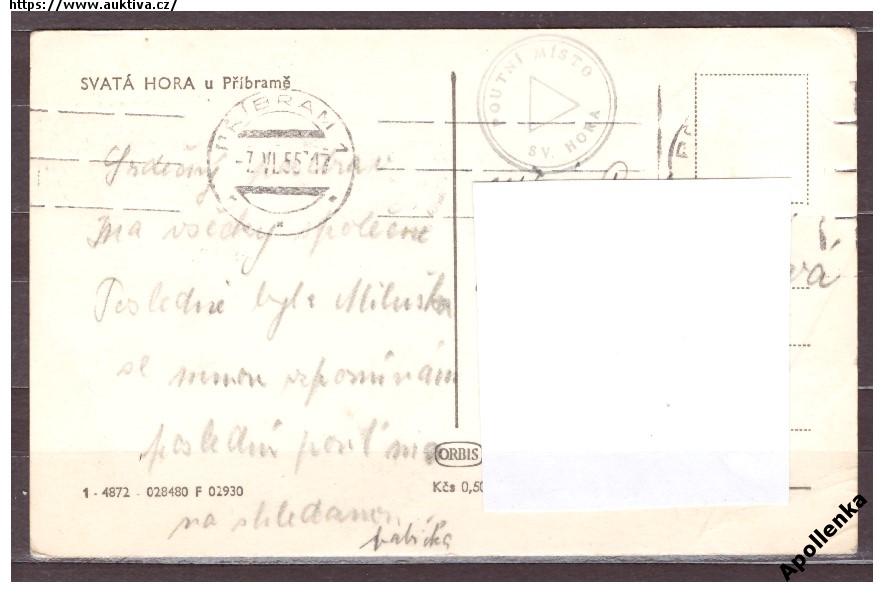 https://www.auktiva.cz/
SVATÁ HORA u Příbramě
POUTNÍ MÍSTO
SV. HORA
PŘÍBRAM 1
-7.VI.55-17
Srdečný pozdrav
na všecky společně
Posledně byla Miluška
se mnou vzpomínám
poslední pouť
ORBIS
1 - 4872 - 028480 F 02930
Kčs 0,50
na shledanou
babička
vá
Apollenka